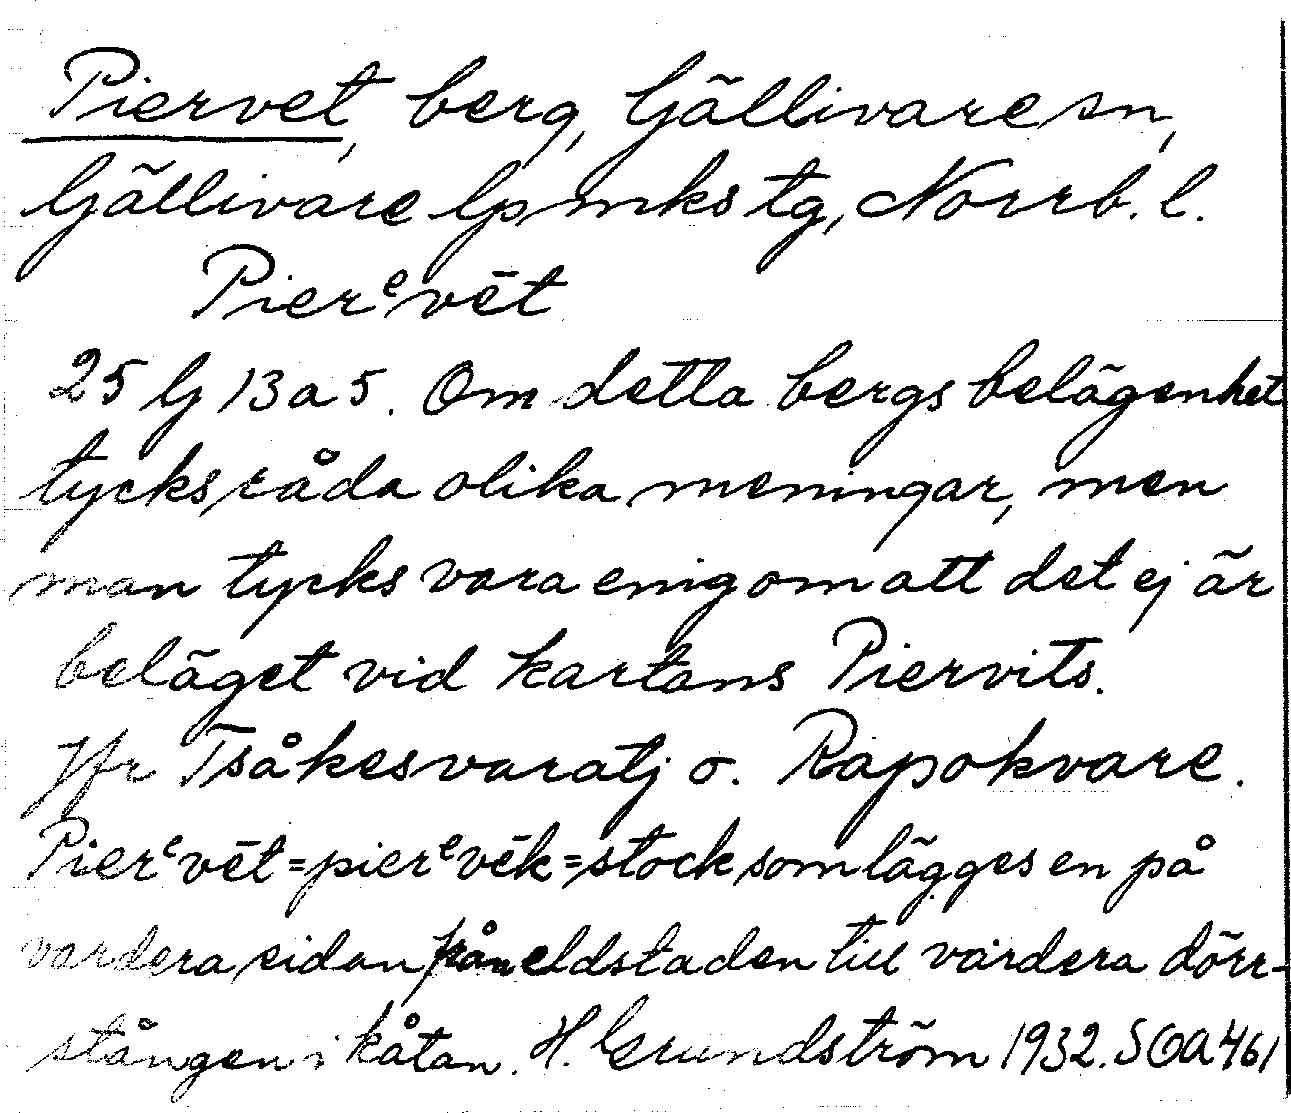 Piervet, berg, Gällivare sn,
Gällivare lpmks tg, Norrb. l.
Pierᵉvēt
25 G 13 a 5. Om detta bergs belägenhet
tycks råda olika meningar, men
man tycks vara enig om att det ej är
beläget vid kartans Piervits.
Jfr Tsåkesvaratj o. Rapokvare.
Pierᵉvēt = pierᵉvēk = stock som lägges en på
vardera sidan från eldstaden till vardera dörr-
stången i kåtan. H. Grundström 1932. SOA 461